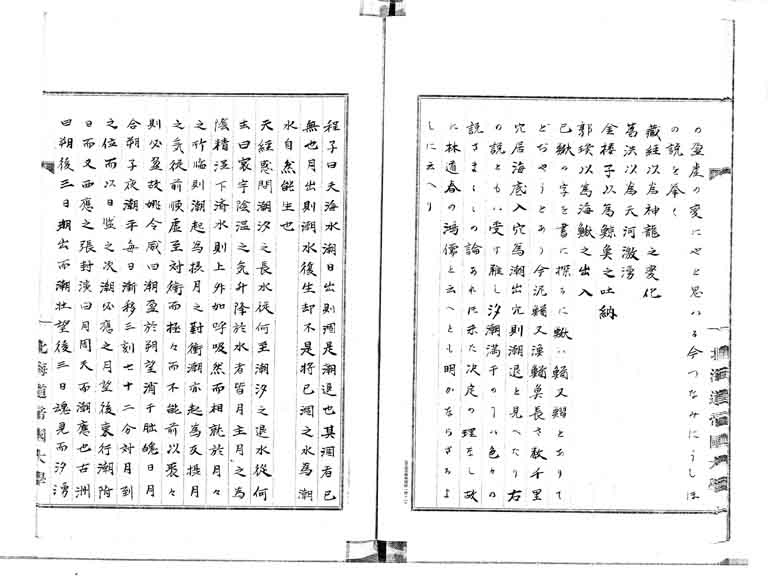 の盈虚の変にやと思ハる今つなみにうしほ
の説を挙く
蔵経以為神龍之変化
葛洪以為天河激湧
金樓子以為鯨魚之吐納
郭璞以為海鰍之出入
已鰍の字を書に探るに鰍ハ鰌又鰼とありて
どぢやうとあり今泥鰌又海鰌魚長さ数千里
穴居海底入穴為潮出穴則潮退と見へたり右
の説ともい受け難し汐潮満干の事ハ色々の
説さましくの論あれに未た決定の理なし故
に林道春の鴻儒と云へとも明かならさるよ
しに云へり
程子曰天海水潮日出則涸是潮退也其涸者已
無也月出則潮水復生却不是将已涸之水為潮
水自然能生也
天経惑問潮汐之長水従何至潮汐之退水従何
去曰寰宇陰湿之気升降於水者皆月主月之為
陰精湿下済水則上外如呼吸然而相就於月々
之所臨則潮起為接月之対衝潮亦起為反接月
之気従前順虚至対衝而極々而不能前以聚々
則必盈故姚令威曰潮盈於朔望消于朏魄日月
合朔子夜潮平毎日漸移三刻七十二分対月到
之位而以日臨之次潮必應之月望後東行潮附
日而又西應之張封演曰月周天而潮應也古洲
曰朔後三日潮出而潮壮望後三日魂見而汐湧
北海道帝国大学
北海道帝国大学